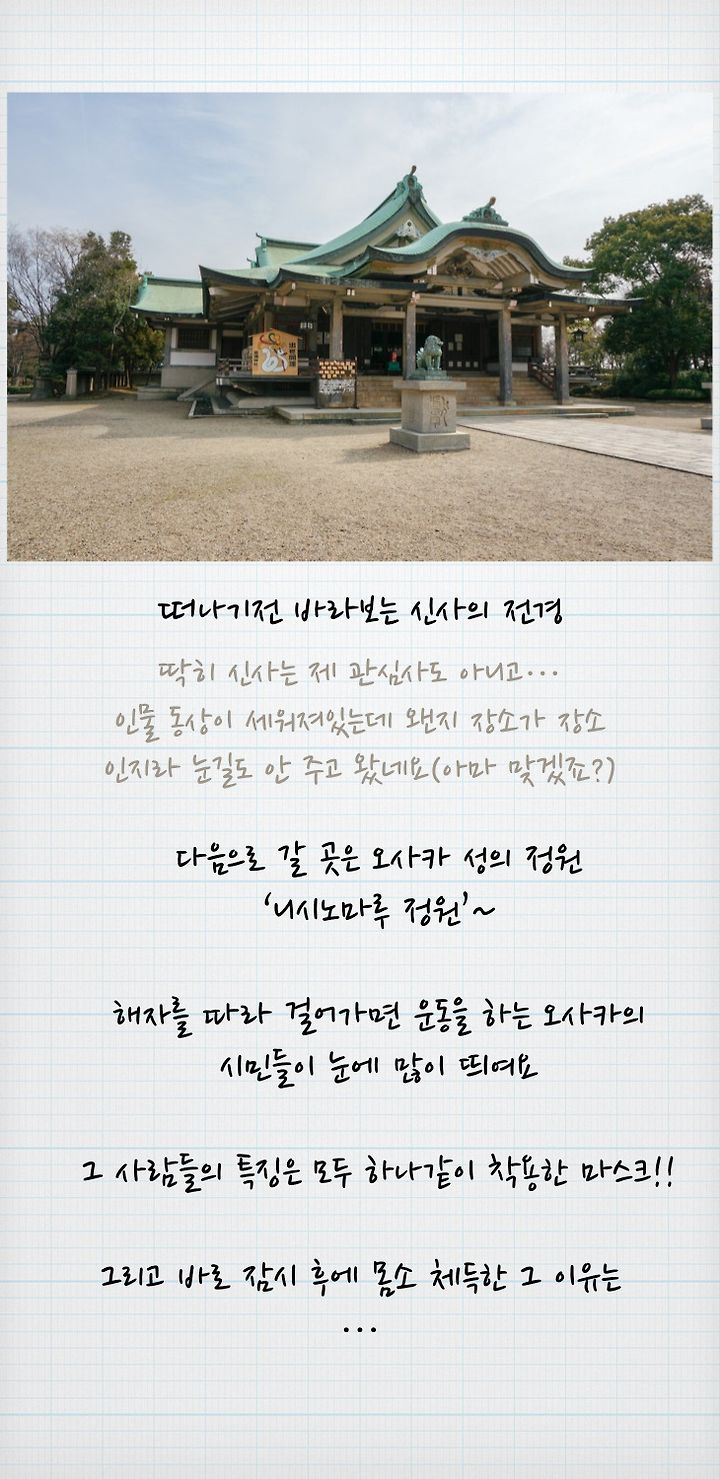 떠나기전 바라보는 신사의 전경
딱히 신사는 제 관심사도 아니고...
인물 동상이 세워져있는데 왠지 장소가 장소
인지라 눈길도 안 주고 왔네요(아마 맞겠죠?)
다음으로 갈 곳은 오사카 성의 정원
‘니시노마루 정원’~
해자를 따라 걸어가면 운동을 하는 오사카의
시민들이 눈에 많이 띄여요
그 사람들의 특징은 모두 하나같이 착용한 마스크!!
그리고 바로 잠시 후에 몸소 체득한 그 이유는
...